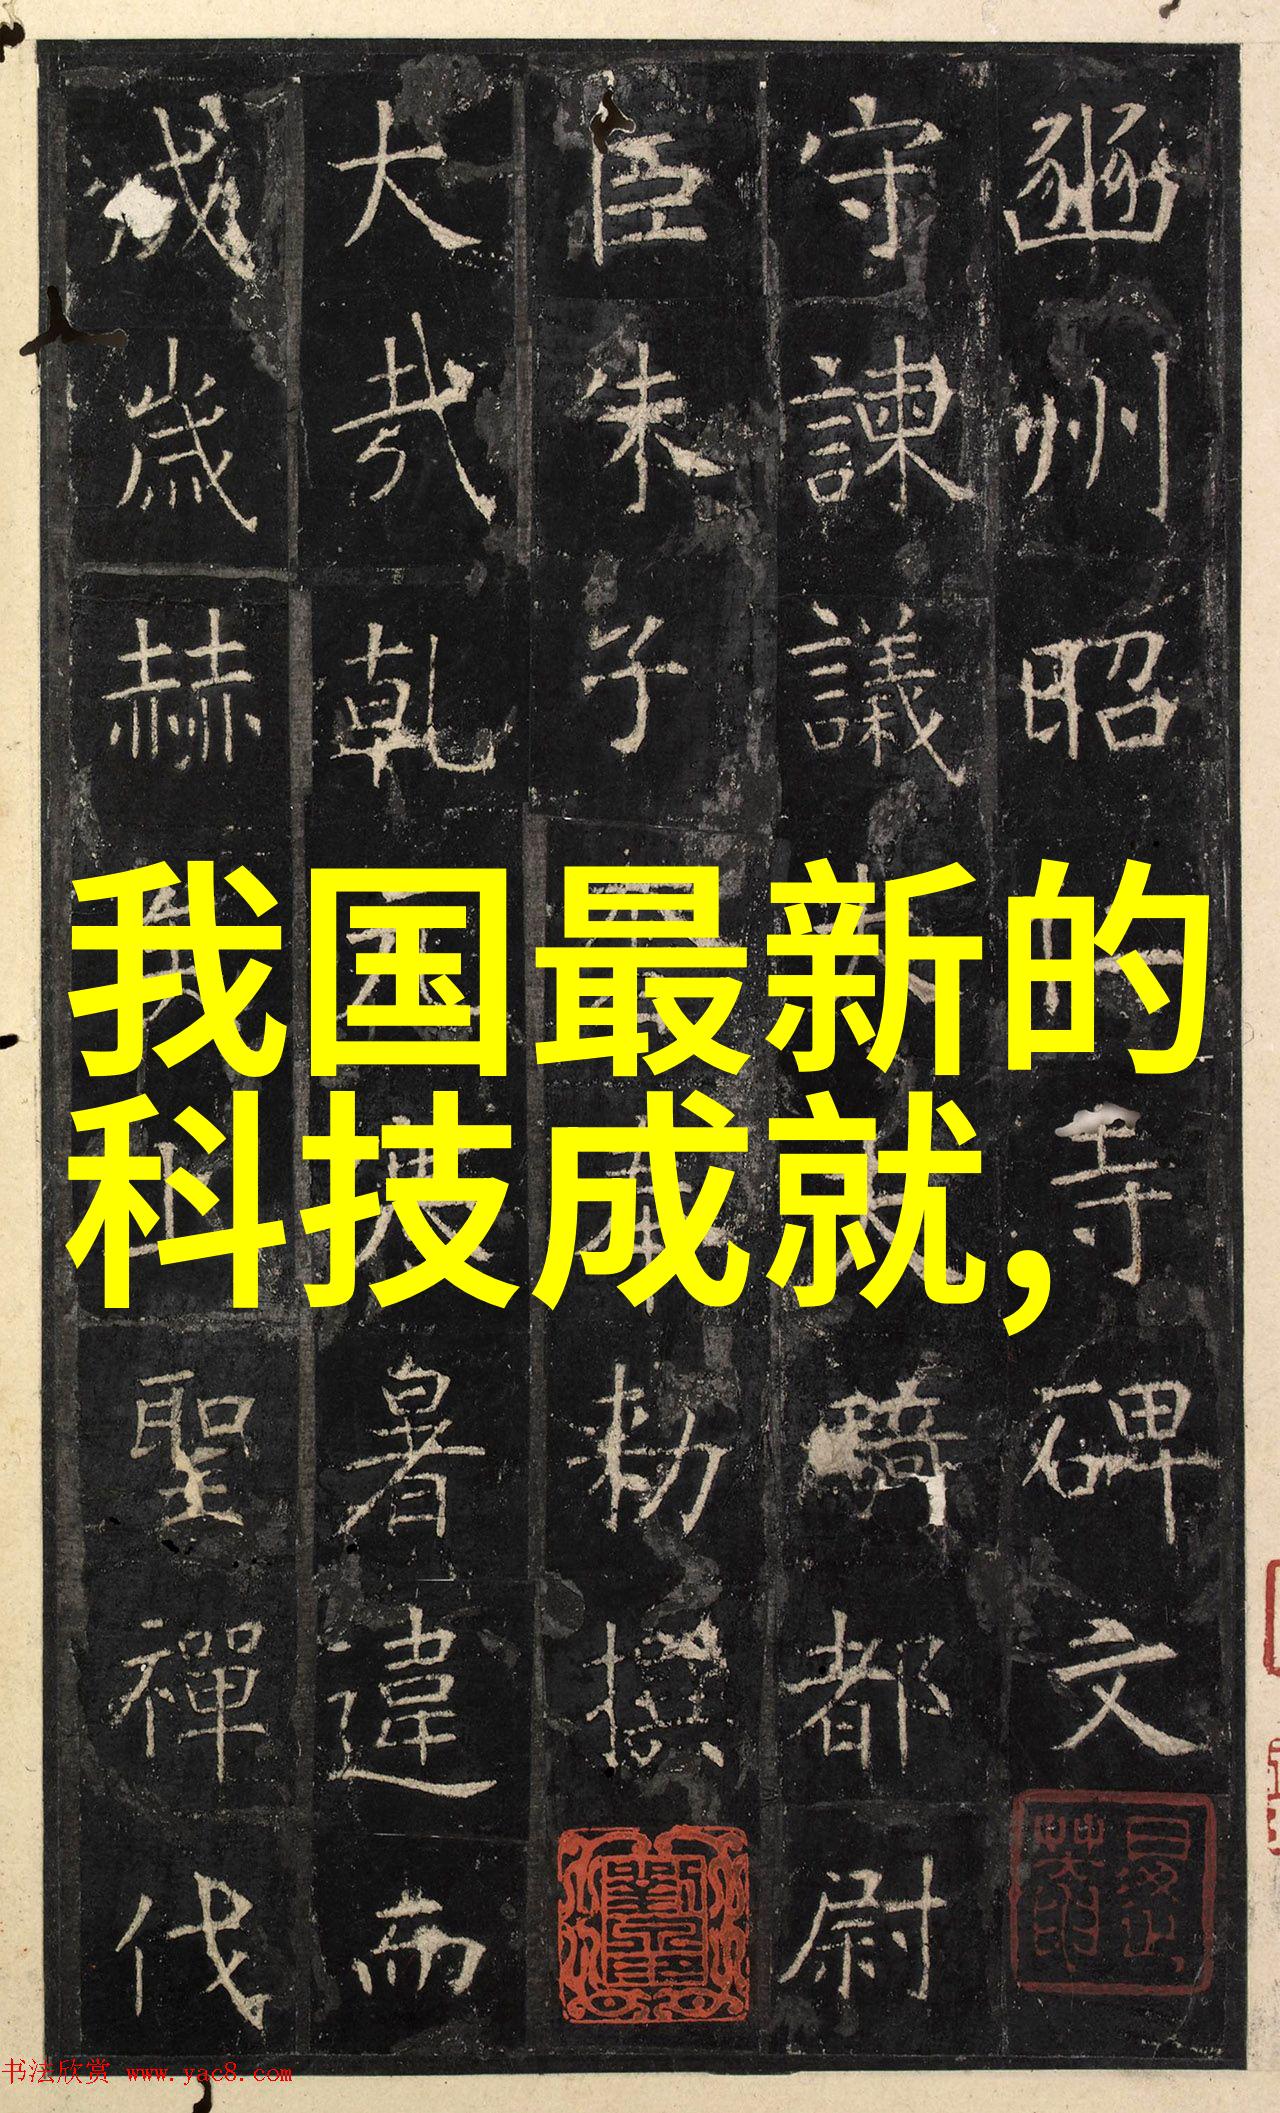 我国最新的
科技成就,
豳州昭寺碑文
守諫議騎都尉
臣朱子勅撰
大哉乾暑違而
成歲赫聖禪代
书法欣赏 www.yac8.com